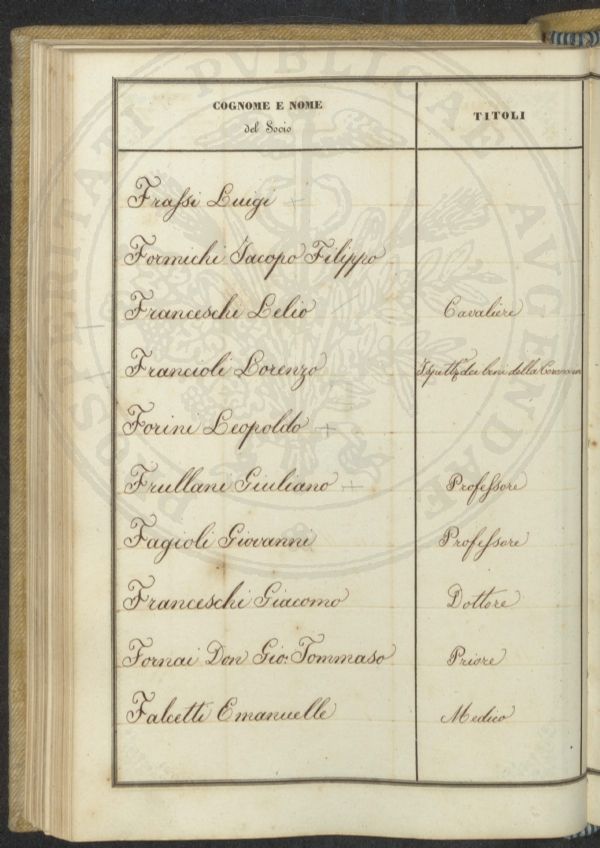 COGNOME E NOME
del Socio
TITOLI
Frassi Luigi +
Formichi Jacopo Filippo
Franceschi Lelio Cavaliere
Francioli Lorenzo Ispett. dei beni della Coronna
Forini Leopoldo +
Frullani Giuliano + Professore
Fagioli Giovanni Professore
Franceschi Giacomo Dottore
Fornai Don Gio: Tommaso Priore
Falcetti Emanuelle Medico
PROSPERITATI PVBLICAE AVGENDAE